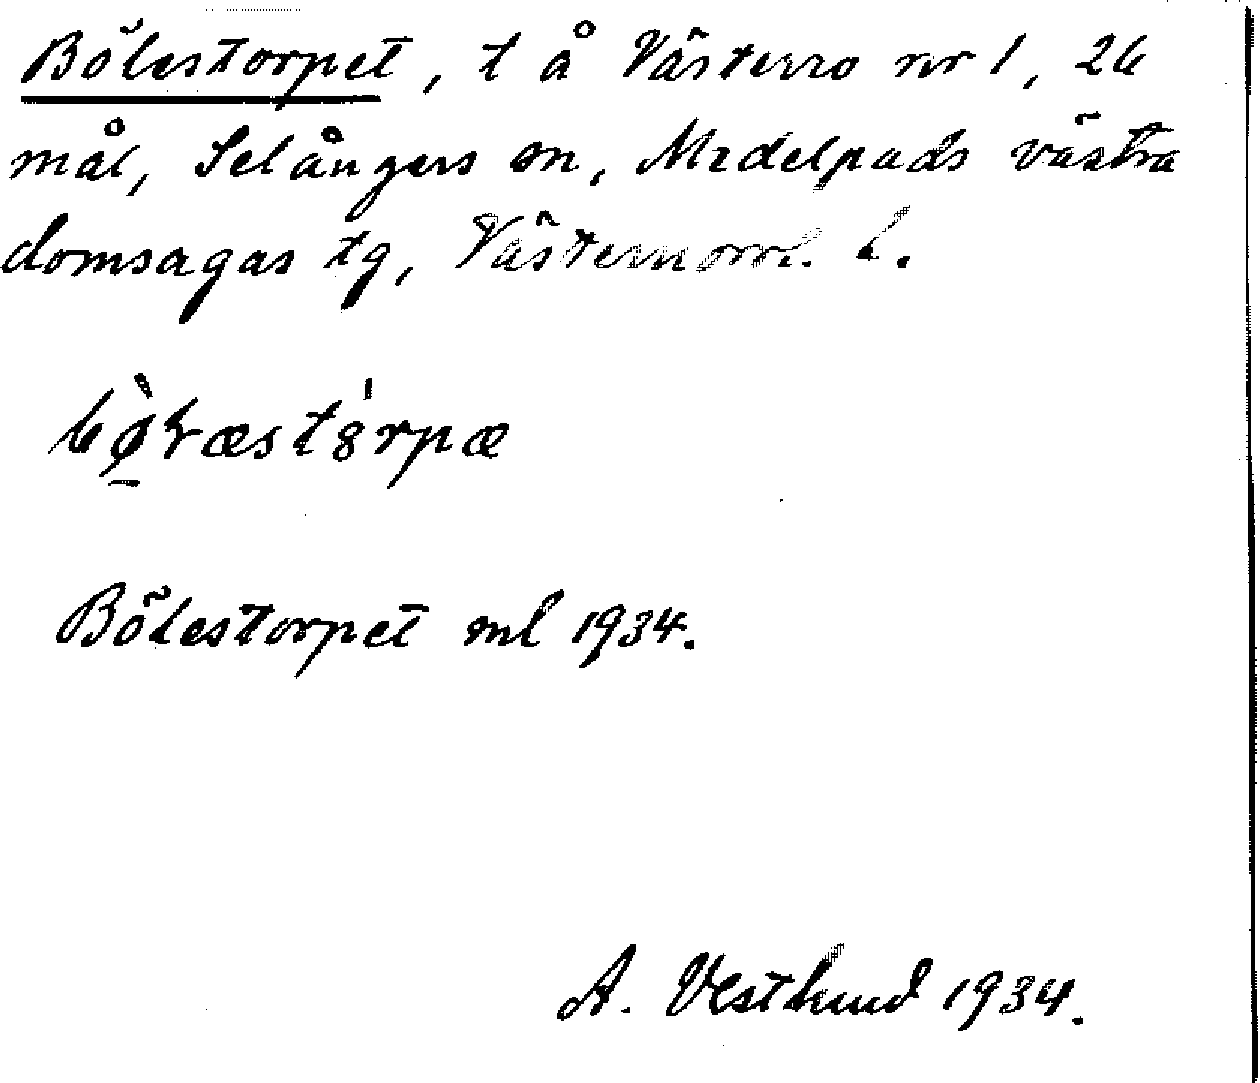 Bölestorpet, t å Västerro nr 1, 26
mål, Selångers sn, Medelpads västra
domsagas tg, Västernorrl. l.
Bölestorpet ml 1934.
A. Vestlund 1934.